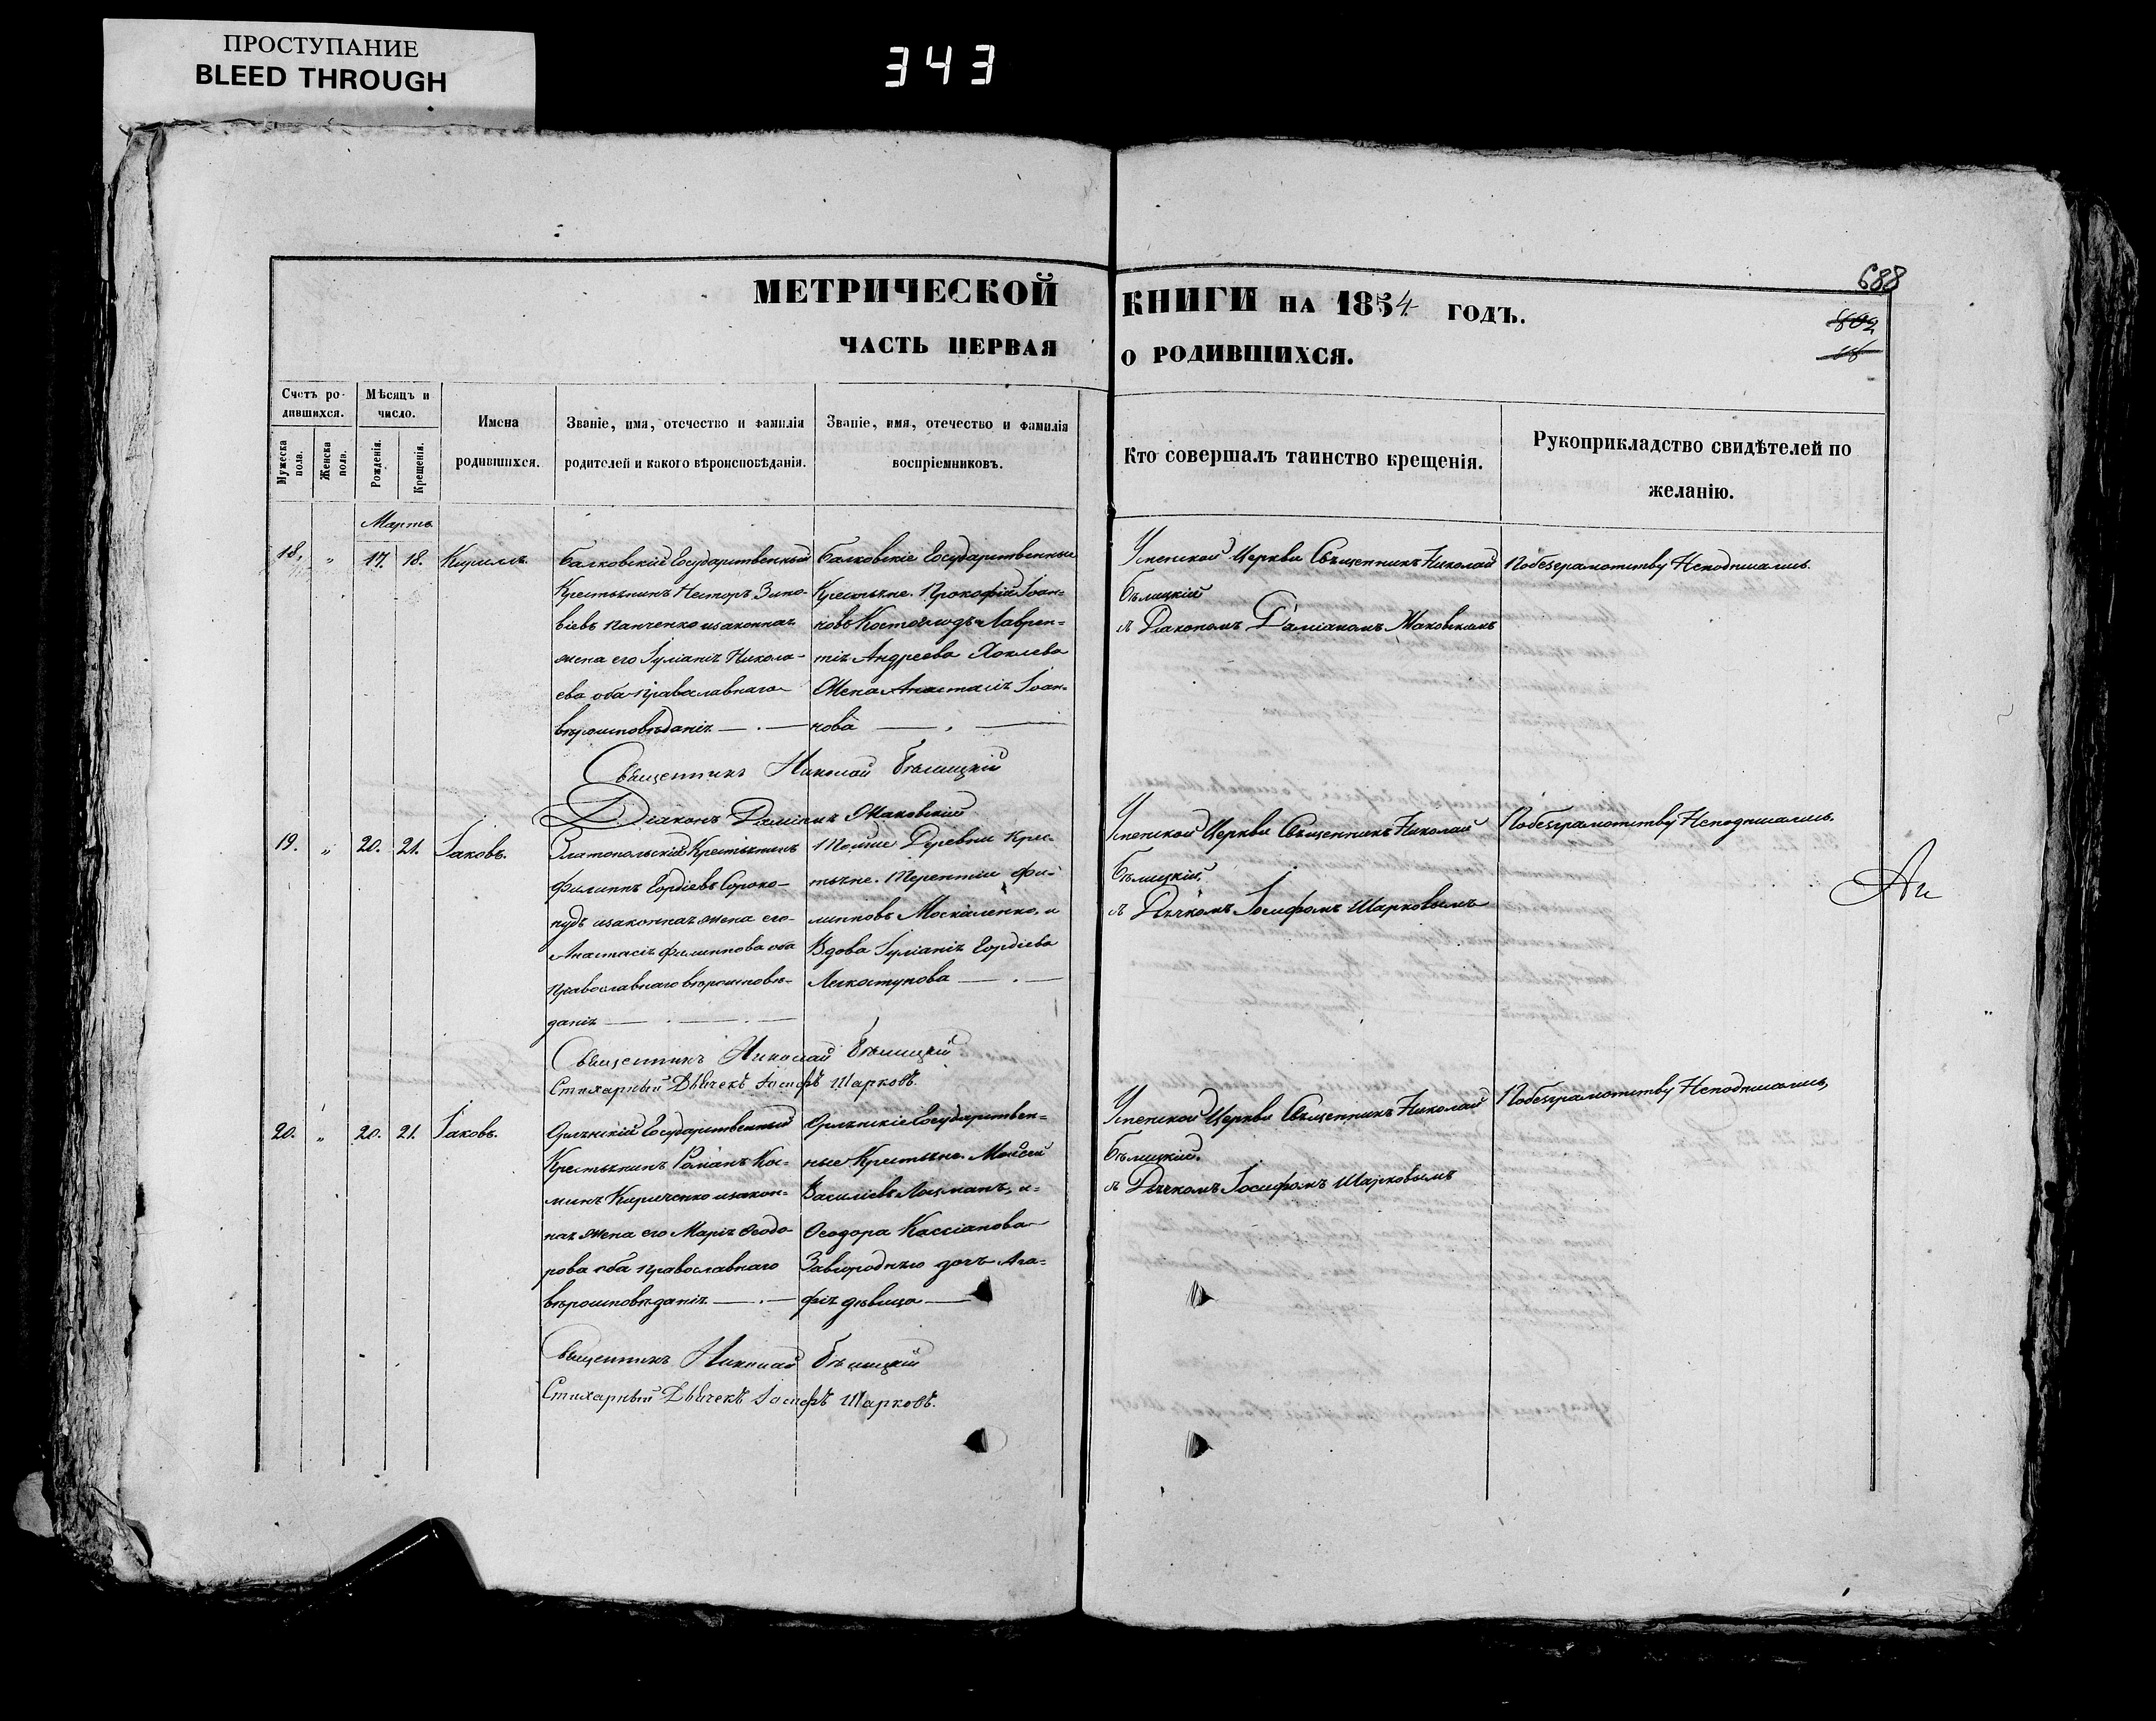 ПРОСТУПАНИЕ
BLEED THROUGH
343
688
802
МЕТРИЧЕСКОЙ КНИГИ НА 1854 ГОДЪ.
ЧАСТЬ ПЕРВАЯ О РОДИВШИХСЯ.
Счетъ ро-
дившихся.
Мужеска пола.
Женска пола.
Мѣсяцъ и
число.
Рожденія.
Крещенія.
Имена
родившихся.
Званіе, имя, отчество и фамилія
родителей и какого вѣроисповѣданія.
Званіе, имя, отчество и фамилія
воспріемниковъ.
Кто совершалъ таинство крещенія.
Рукоприкладство свидѣтелей по
желанію.
Мартъ
18. " 17. 18. Кириллъ.
Балковскій Государственный
Крестьянинъ Несторъ Зино-
віевъ Панченко и законная
жена его Іуліанія Никола-
ева оба православнаго
вѣроисповѣданія
Балковскіе Государственные
Крестьяне. Прокофій Іоан-
новъ и Лаврен-
тія Андреева Хохлева
Жена Анастасія Іоан-
нова
Успенской Церкви Священникъ Николай
Бѣлицкій
съ Діакономъ Даміаномъ Жаковскимъ
Побезграмотству Неподписались.
Священникъ Николай Бѣлицкій
Діаконъ Даміанъ Жаковскій
19. " 20. 21. Іаковъ.
Златопольскій Крестьянинъ
Филиппъ Гордіевъ Сороко-
пудъ и законная жена его
Анастасія Филиппова оба
Православнаго вѣроисповѣ-
данія
Тойже Деревни Крес-
тьяне. Терентій Фи-
липповъ Москаленко, и
Вдова Іуліанія Гордіева
Легкоступова
Успенской Церкви Священникъ Николай
Бѣлицкій.
съ Дьячкомъ Іосифомъ Шарковымъ
Побезграмотству Неподписались.
Священникъ Николай Бѣлицкій
Стихарный Дьячекъ Іосифъ Шарковъ.
20. " 20. 21. Іаковъ.
Орлянскій Государственный
Крестьянинъ Романъ Кос-
минъ Кириченко и закон-
ная жена его Марія Ѳеодо-
рова оба православнаго
вѣроисповѣданія.
Орлянскіе Государствен-
ные Крестьяне. Моисей
Василіевъ Лоцманъ, и
Ѳеодора Кассіанова
Завгороднего дочь Ага-
фія дѣвица
Успенской Церкви Священникъ Николай
Бѣлицкій.
съ Дьячкомъ Іосифомъ Шарковымъ
Побезграмотству Неподписались,
Священникъ Николай Бѣлицкій
Стихарный Дьячекъ Іосифъ Шарковъ.